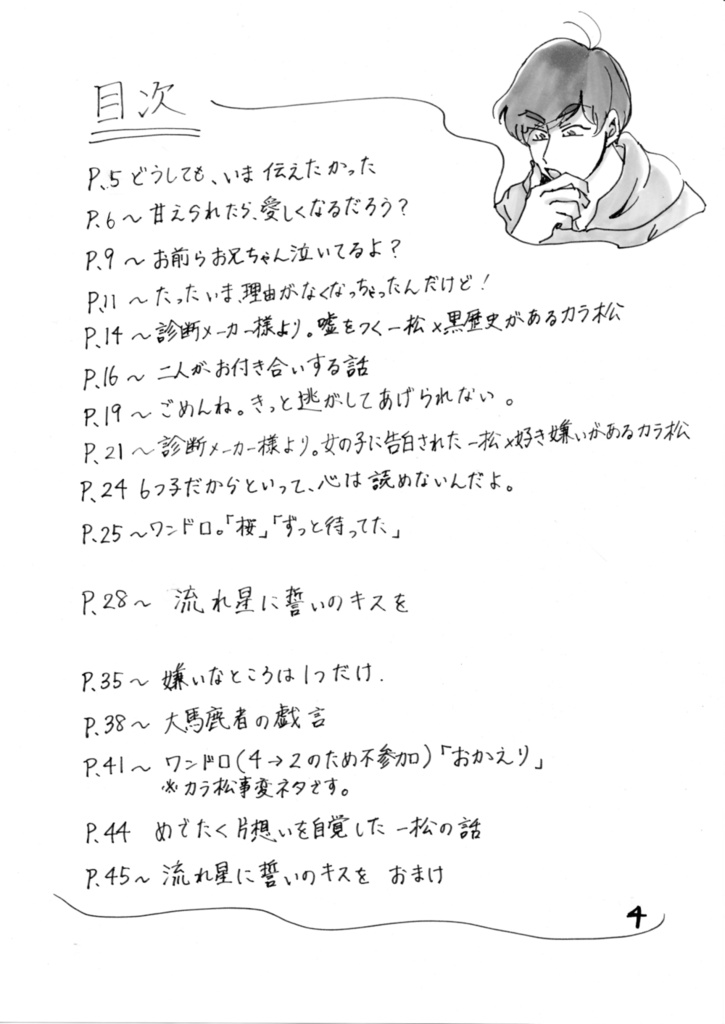 目次
P.5 どうしても、いま伝えたかった
P.6〜甘えられたら、愛しくなるだろう?
P.9〜お前らお兄ちゃん泣いてるよ?
P.11〜たったいま、理由がなくなっちゃったんだけど!
P.14〜診断メーカー様より。嘘をつく一松×黒歴史があるカラ松
P.16〜二人がお付き合いする話
P.19〜ごめんね。きっと逃がしてあげられない。
P.21〜診断メーカー様より。女の子に告白された一松×好き嫌いがあるカラ松
P.24 6つ子だからといって、心は読めないんだよ。
P.25〜ワンドロ。「桜」「ずっと待ってた」
P.28〜 流れ星に誓いのキスを
P.35〜 嫌いなところは1つだけ.
P.38〜 大馬鹿者の戯言
P.41〜 ワンドロ(4→2のため不参加)「おかえり」
※カラ松事変ネタです。
P.44 めでたく片想いを自覚した一松の話
P.45〜 流れ星に誓いのキスを おまけ
4